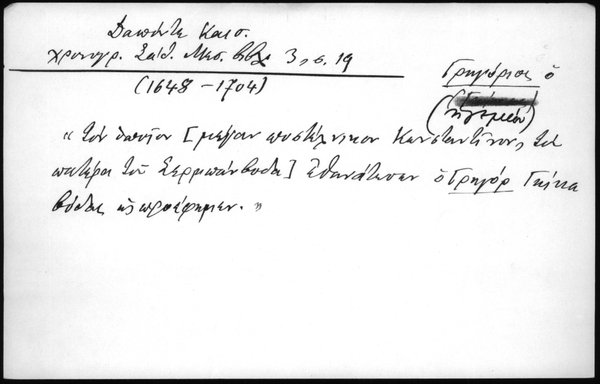 Δαπόντε Καισ.
χρονογρ. Σάθ. Μεσ. Βιβλ 3, σ. 19
(1648 - 1704)
Γρηγόριος ὁ
(ἡγεμών)
" τὸν ὁποῖον [μέγαν ποστέλνικον Κωνσταντῖνον, τὸν
πατέρα τοῦ Σερμπάνβοδα] ἐθανάτωσεν ὁ Γρηγόρ Γκίκα
βόδας ὡς προέφημεν. "